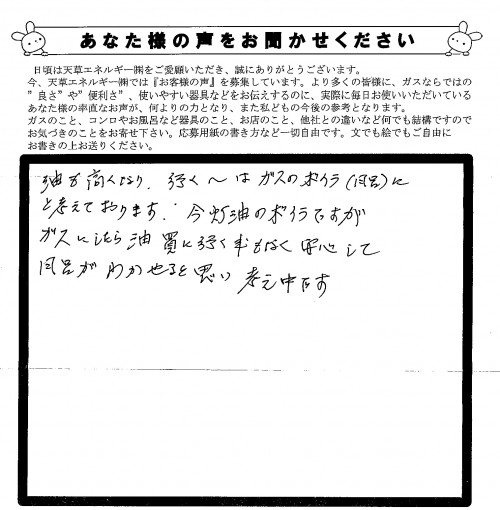 あなた様の声をお聞かせください
日頃は天草エネルギー㈱をご愛顧いただき、誠にありがとうございます。
今、天草エネルギー㈱では『お客様の声』を募集しています。より多くの皆様に、ガスならではの
”良さ”や”便利さ”、使いやすい器具などをお伝えするのに、実際に毎日お使いいただいている
あなた様の率直なお声が、何よりの力となり、また私どもの今後の参考となります。
ガスのこと、コンロやお風呂など器具のこと、お店のこと、他社との違いなど何でも結構ですので
お気づきのことをお寄せ下さい。応募用紙の書き方など一切自由です。文でも絵でもご自由に
お書きの上お送りください。
油も高くなり、行く〜はガスのボイラ(風呂)に
と考えております。今灯油のボイラですが
ガスにしたら油買に行く事もなく安心して
風呂がわかせると思い考え中です